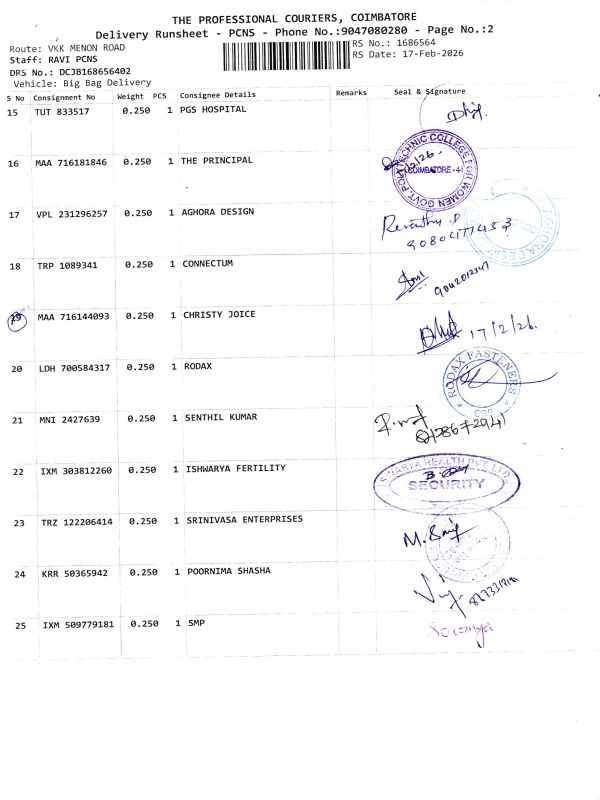 THE PROFESSIONAL COURIERS, COIMBATORE
Delivery Runsheet - PCNS - Phone No.:9047080280 - Page No.:2
Route: VKK MENON ROAD
RS No.: 1686564
Staff: RAVI PCNS
RS Date: 17-Feb-2026
DRS No.: DCJB168656402
Vehicle: Big Bag Delivery
S No Consignment No Weight PCS Consignee Details Remarks Seal & Signature
15 TUT 833517 0.250 1 PGS HOSPITAL
16 MAA 716181846 0.250 1 THE PRINCIPAL
COIMBATORE-44
17 VPL 231296257 0.250 1 AGHORA DESIGN
Revathy.P
18 TRP 1089341 0.250 1 CONNECTUM
9042012347
19 MAA 716144093 0.250 1 CHRISTY JOICE
17/2/26.
20 LDH 700584317 0.250 1 RODAX
RODAX FASTENERS
21 MNI 2427639 0.250 1 SENTHIL KUMAR
22 IXM 303812260 0.250 1 ISHWARYA FERTILITY
SECURITY
23 TRZ 122206414 0.250 1 SRINIVASA ENTERPRISES
24 KRR 50365942 0.250 1 POORNIMA SHASHA
25 IXM 509779181 0.250 1 SMP
Soumya